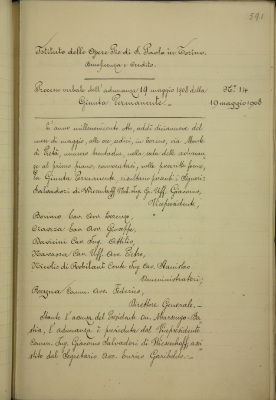 591
Istituto delle Opere Pie di S. Paolo in Torino.
Beneficenza e Credito.
Processo verbale dell'adunanza 19 maggio 1908 della
Giunta Permanente.
N.° 14
19 maggio 1908
L'anno millenovecento otto, addì diciannove del
mese di maggio, alle ore, in Torino, via Monte
di Pietà, numero trentadue, nella sala delle adunanze
al primo piano, convocatasi, nelle prescritte forme,
la Giunta Permanente risultano presenti i Signori:
Salvadori di Wiesenhoff Nob. Ing. Gr. Uff. Giacomo,
Vicepresidente,
Bonino Cav. Avv. Lorenzo,
Cav. Avv. Giuseppe,
Cav. Ing. Attilio,
Ravagna Cav. Uff. Avv. Pietro,
Nicolis di Robilant Conte Ing. Cav. Stanislao
Amministratori;
Comm. Avv. Federico,
Direttore Generale,
Stante l'assenza del Presidente On.
l'adunanza è presieduta dal Vicepresidente
Comm. Ing. Giacomo Salvadori di Wiesenhoff,
dal Segretario Avv. Enrico